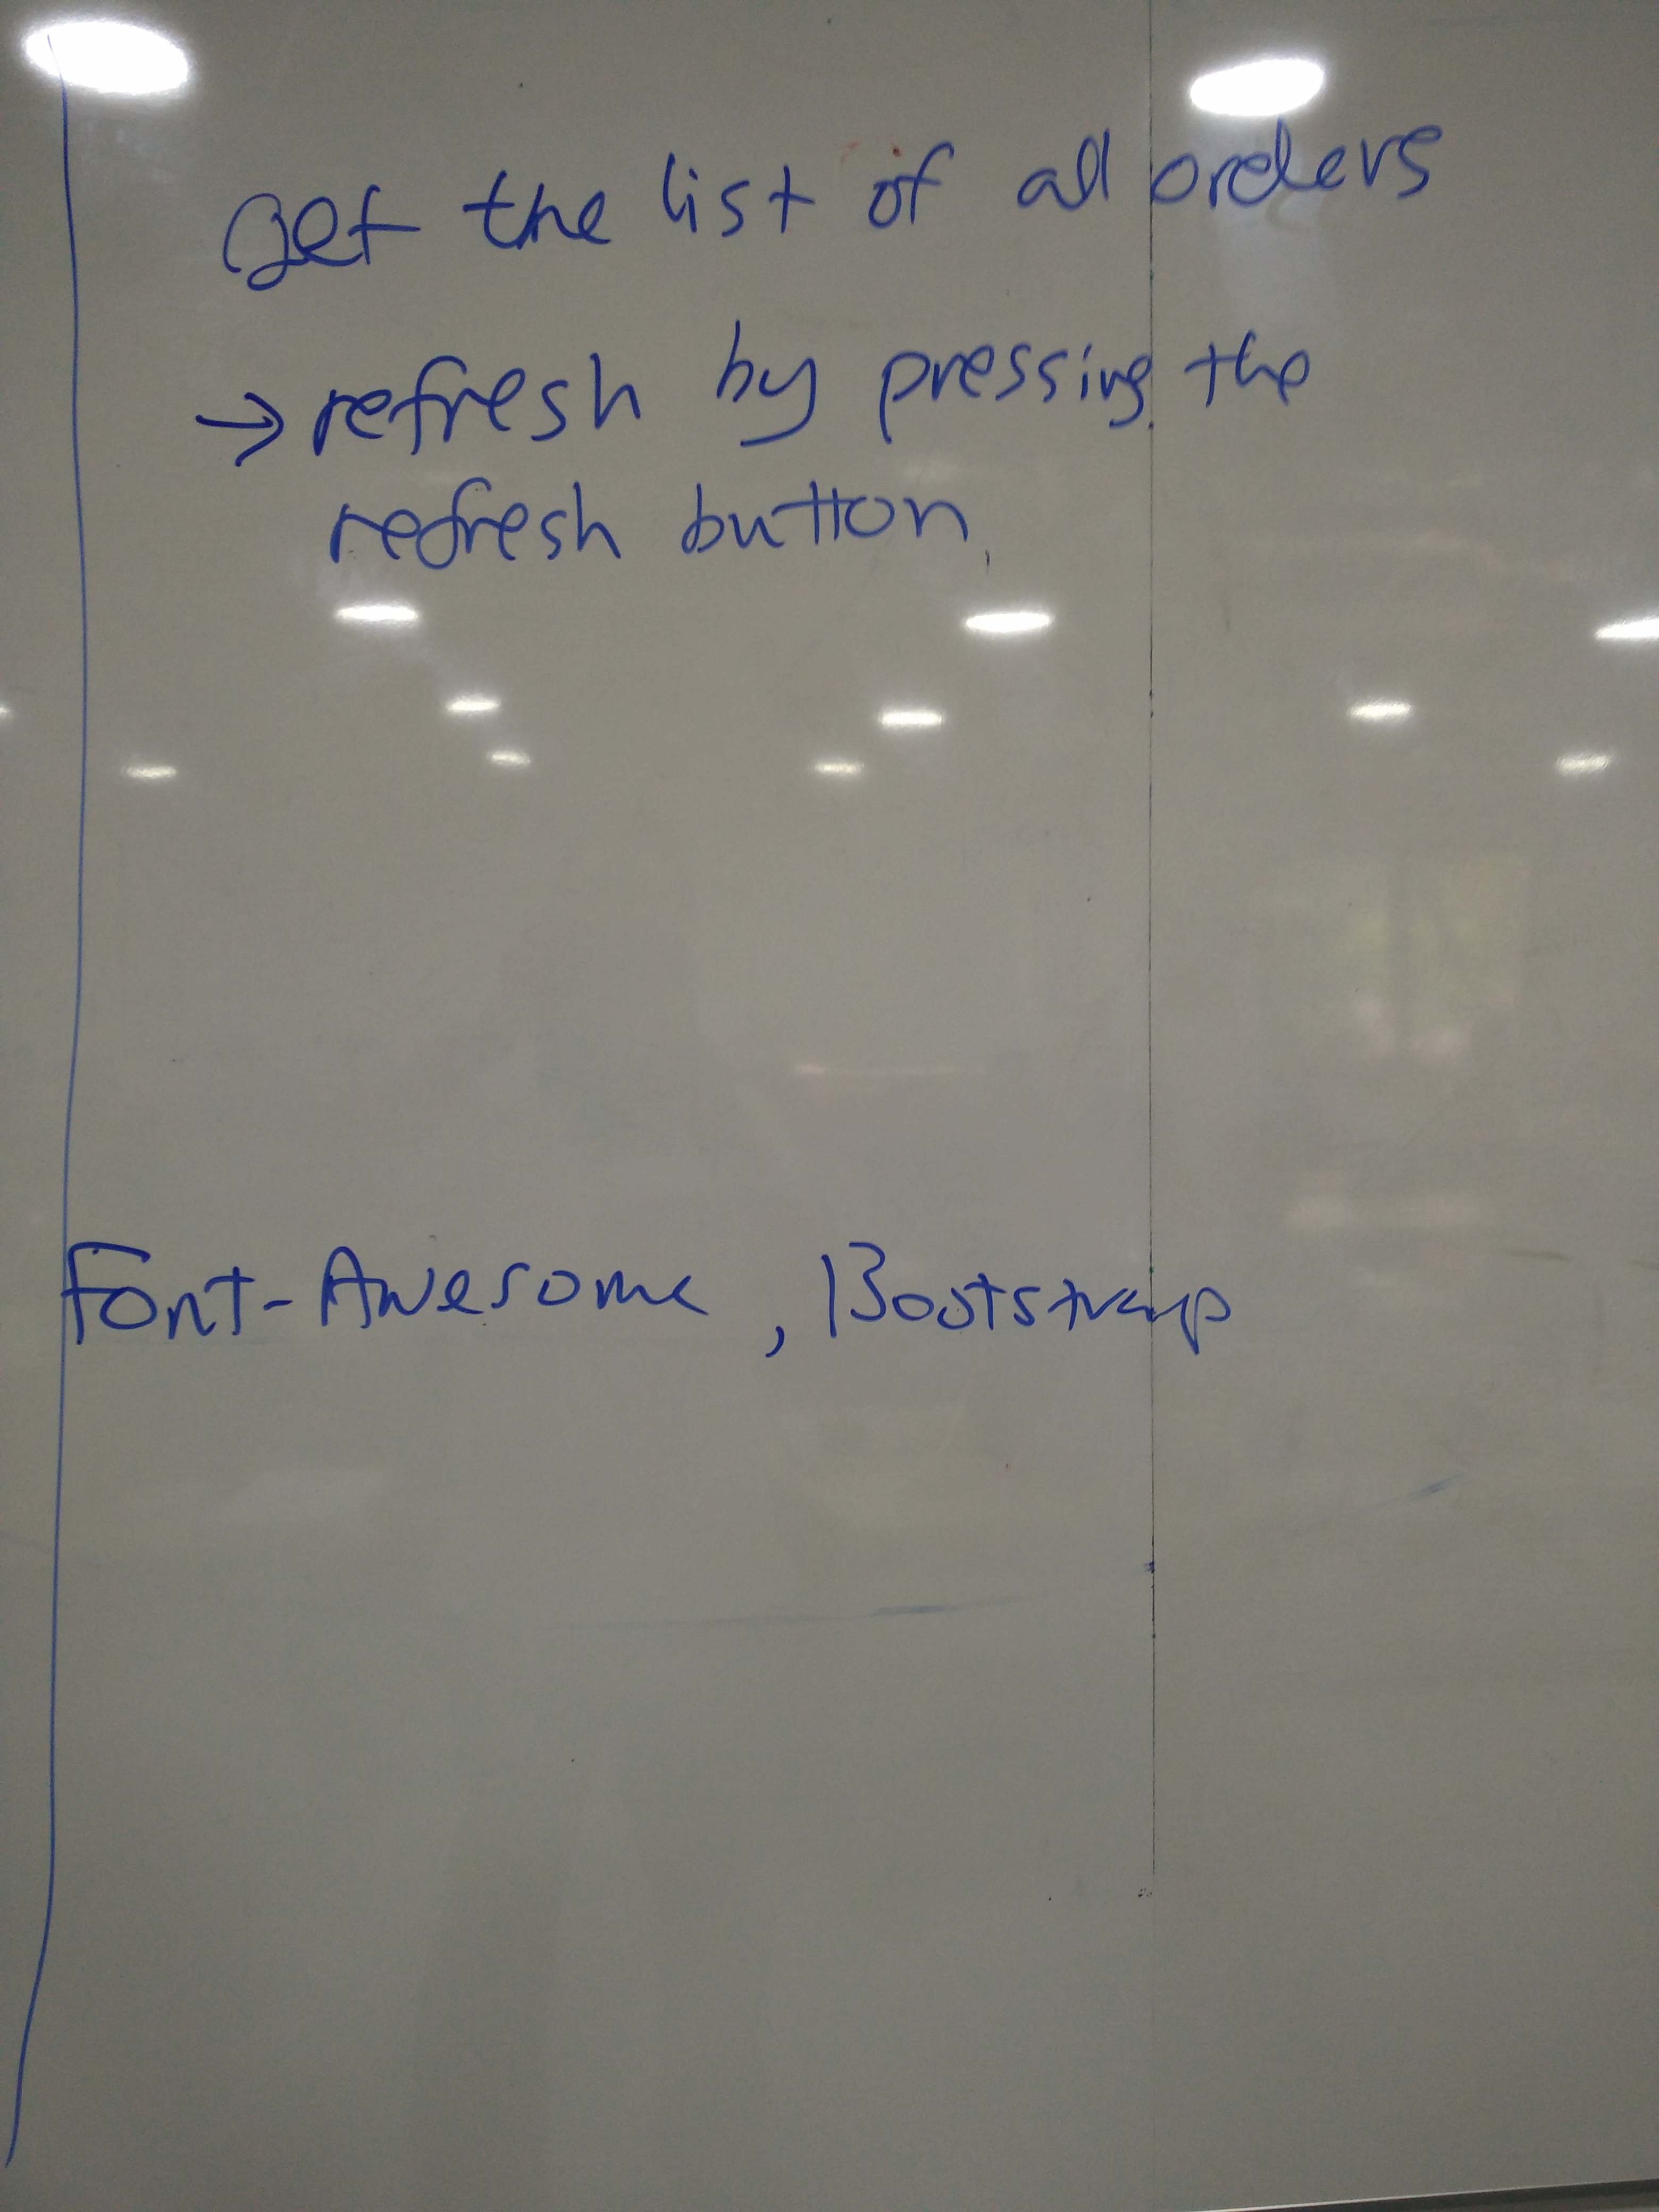 get the list of all orders
→ refresh by pressing the
refresh button.
Font-Awesome, Bootstrap